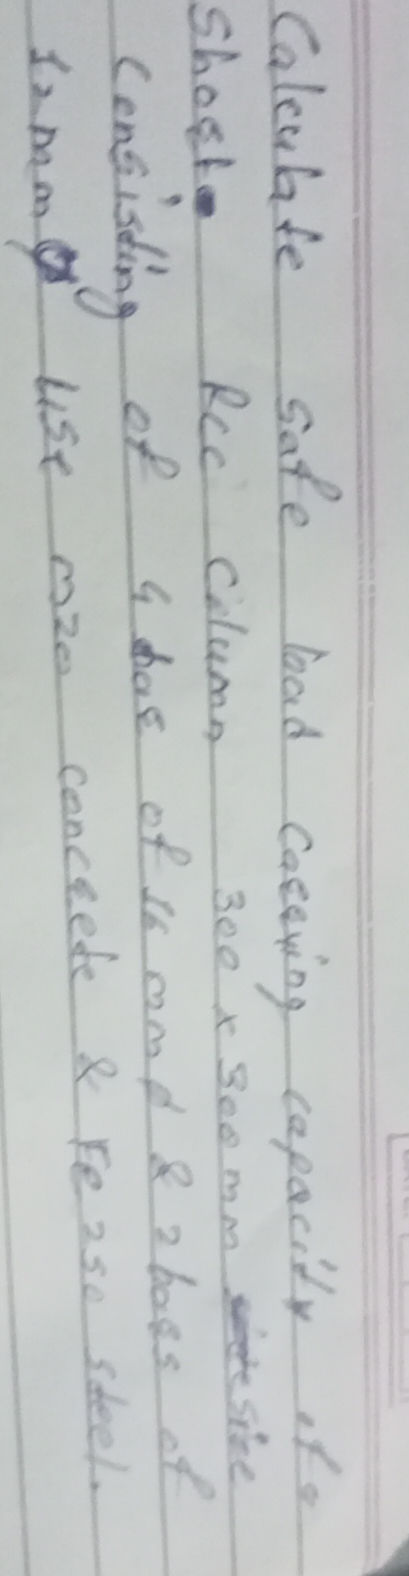 Calculate safe load carrying capacity of a
short RCC column 300 x 300 mm size
consisting of 4 bar of 16 mm ϕ & 2 bars of
12 mm ϕ use m20 concrete & Fe 250 steel.